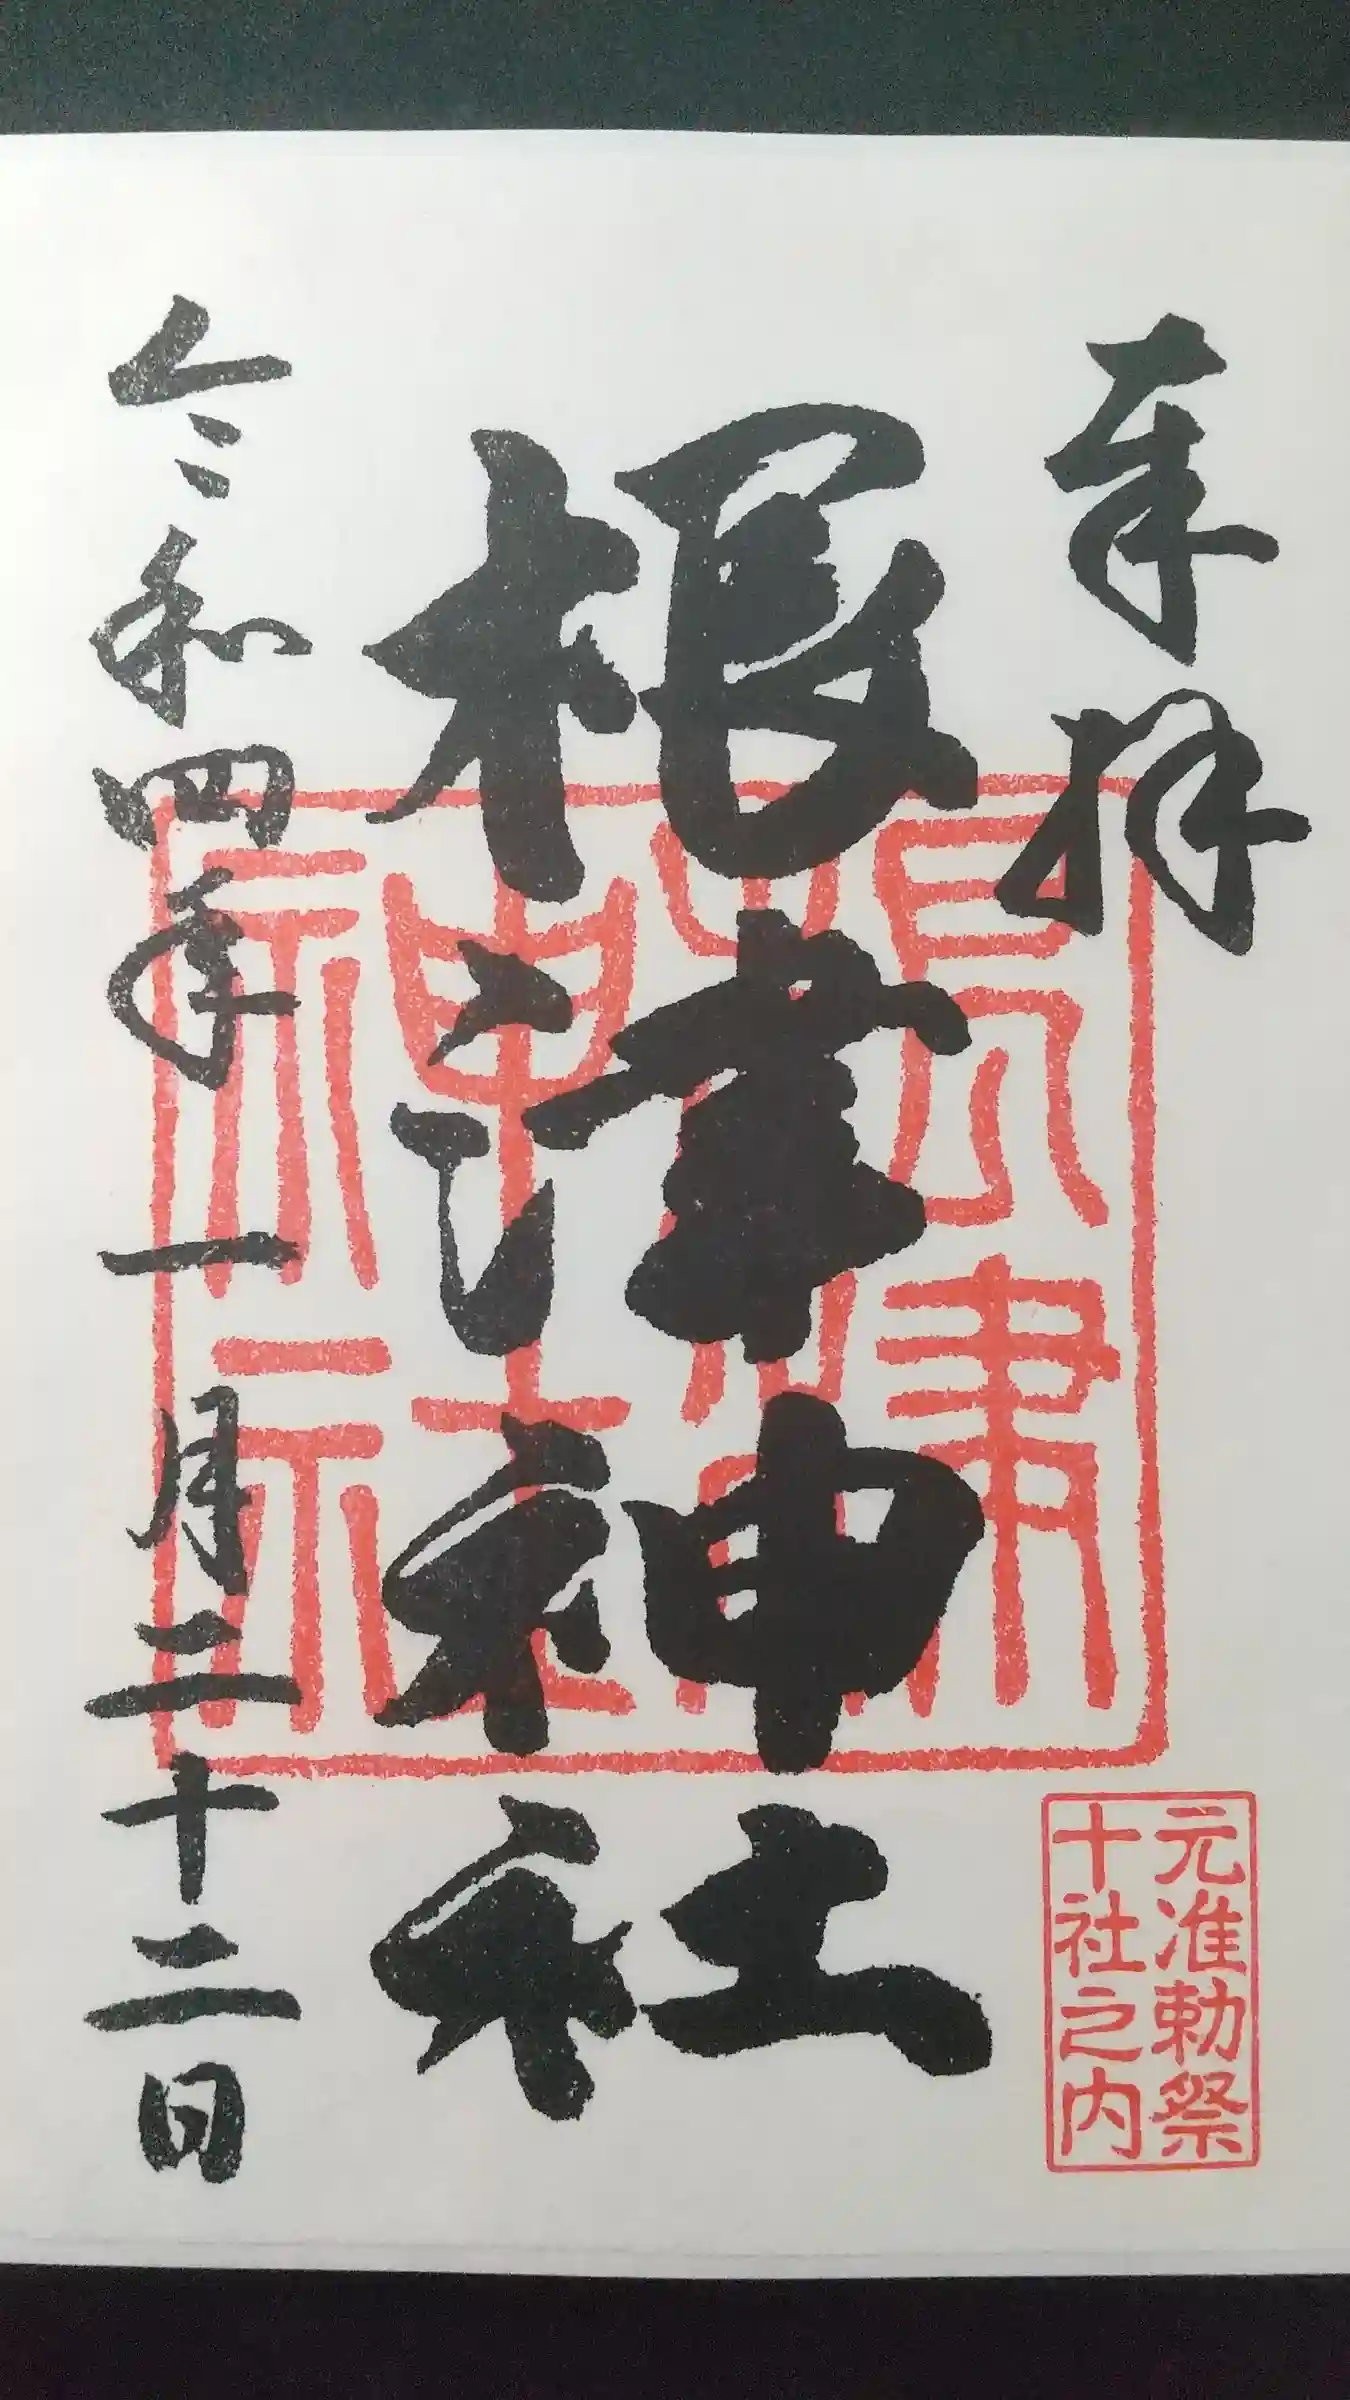 奉拝
元准勅祭
十社之内
根津神社
根津神社
令和四年一月二十二日